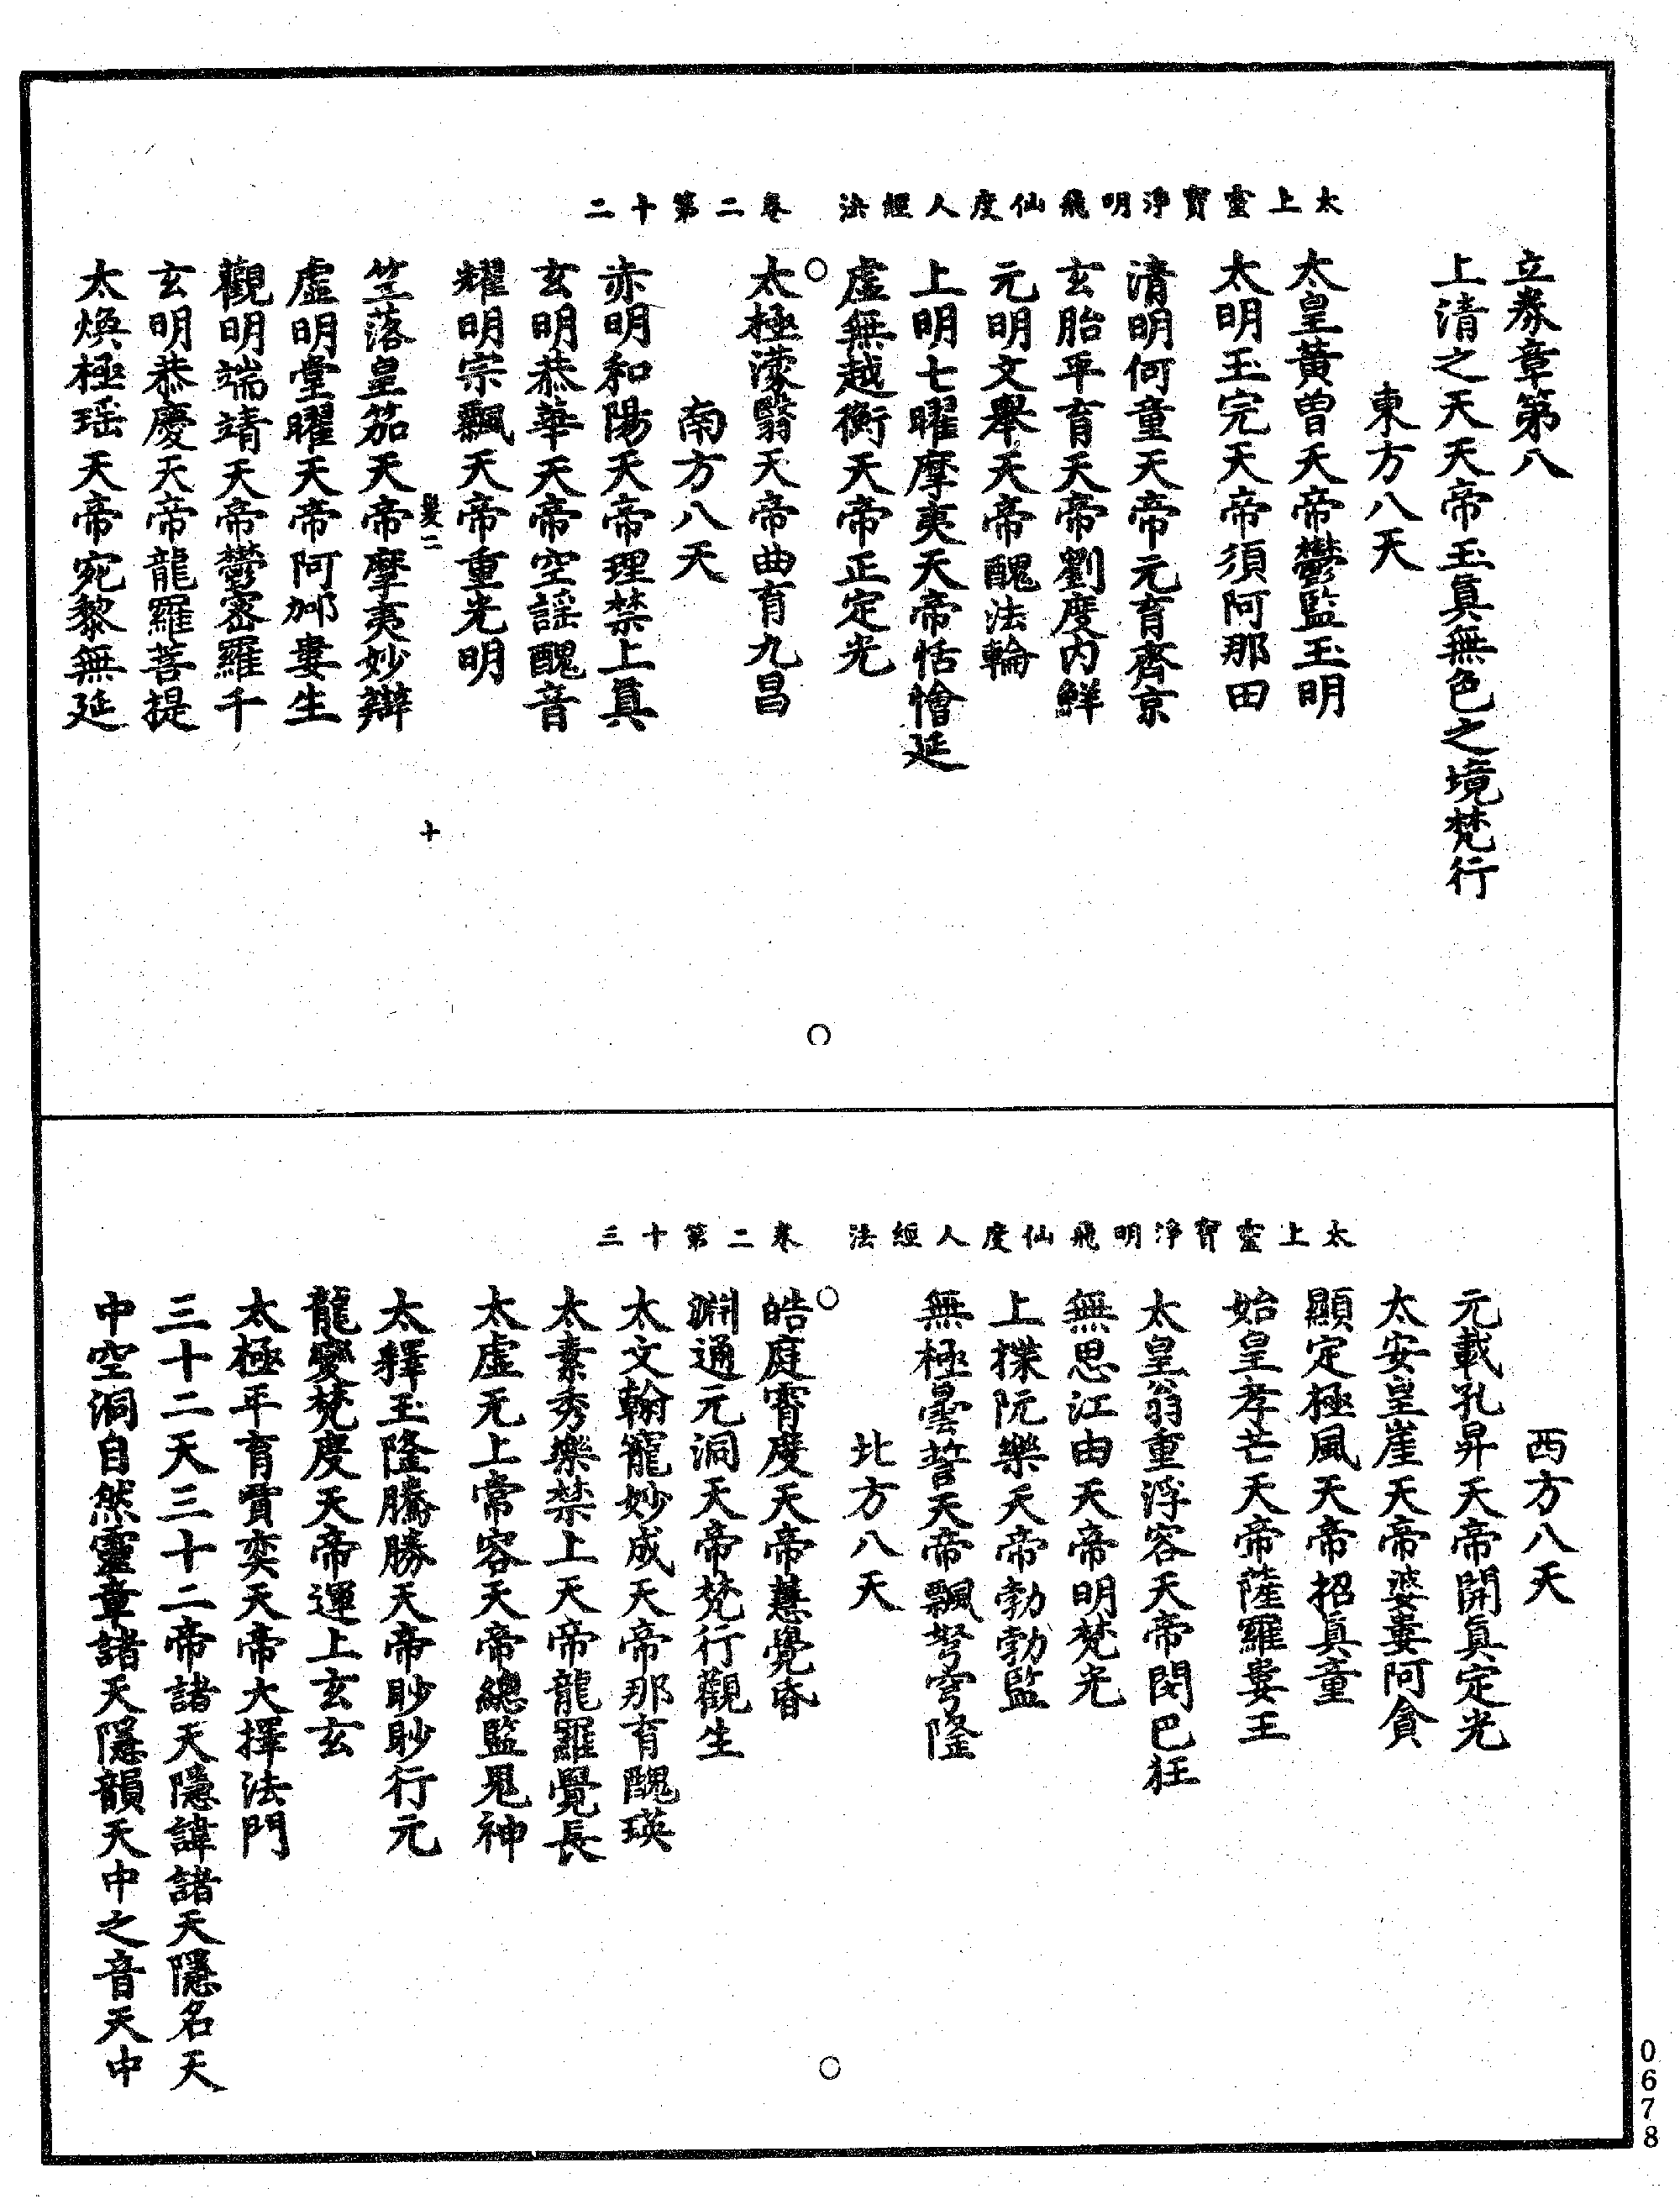 太上靈寶淨明飛仙度人經法　卷二第十二
立奏章第八
上清之天天帝玉眞無色之境梵行
東方八天
太皇黃曾天帝鬱監玉明
太明玉完天帝須阿那田
清明何童天帝元育齊京
玄胎平育天帝劉度內鮮
元明文舉天帝醜法輪
上明七曜摩夷天帝恬憎延
虛無越衡天帝正定光
太極濛翳天帝曲育九昌
南方八天
赤明和陽天帝理禁上眞
玄明恭華天帝空謡醜音
耀明宗飄天帝重光明
竺落皇笳天帝摩夷妙辯
虛明堂曜天帝阿㖠婁生
觀明端靖天帝鬱密羅千
玄明恭慶天帝龍羅菩提
太煥極瑶天帝宛黎無延
太上靈寶淨明飛仙度人經法　卷二第十三
西方八天
元載孔昇天帝開眞定光
太安皇崖天帝婆婁阿貪
顯定極風天帝招眞童
始皇孝芒天帝薩羅婁王
太皇翁重浮容天帝閔巴狂
無思江由天帝明梵光
上揲阮樂天帝勃勃監
無極曇誓天帝飄弩穹隆
北方八天
皓庭霄度天帝慧覺昏
淵通元洞天帝梵行觀生
太文翰寵妙成天帝那育醜瑛
太素秀樂禁上天帝龍羅覺長
太虛无上常容天帝總監鬼神
太釋玉隆騰勝天帝眇眇行元
龍變梵度天帝運上玄玄
太極平育賈奕天帝大擇法門
三十二天三十二帝諸天隱諱諸天隱名天
中空洞自然靈章諸天隱韻天中之音天中
0678